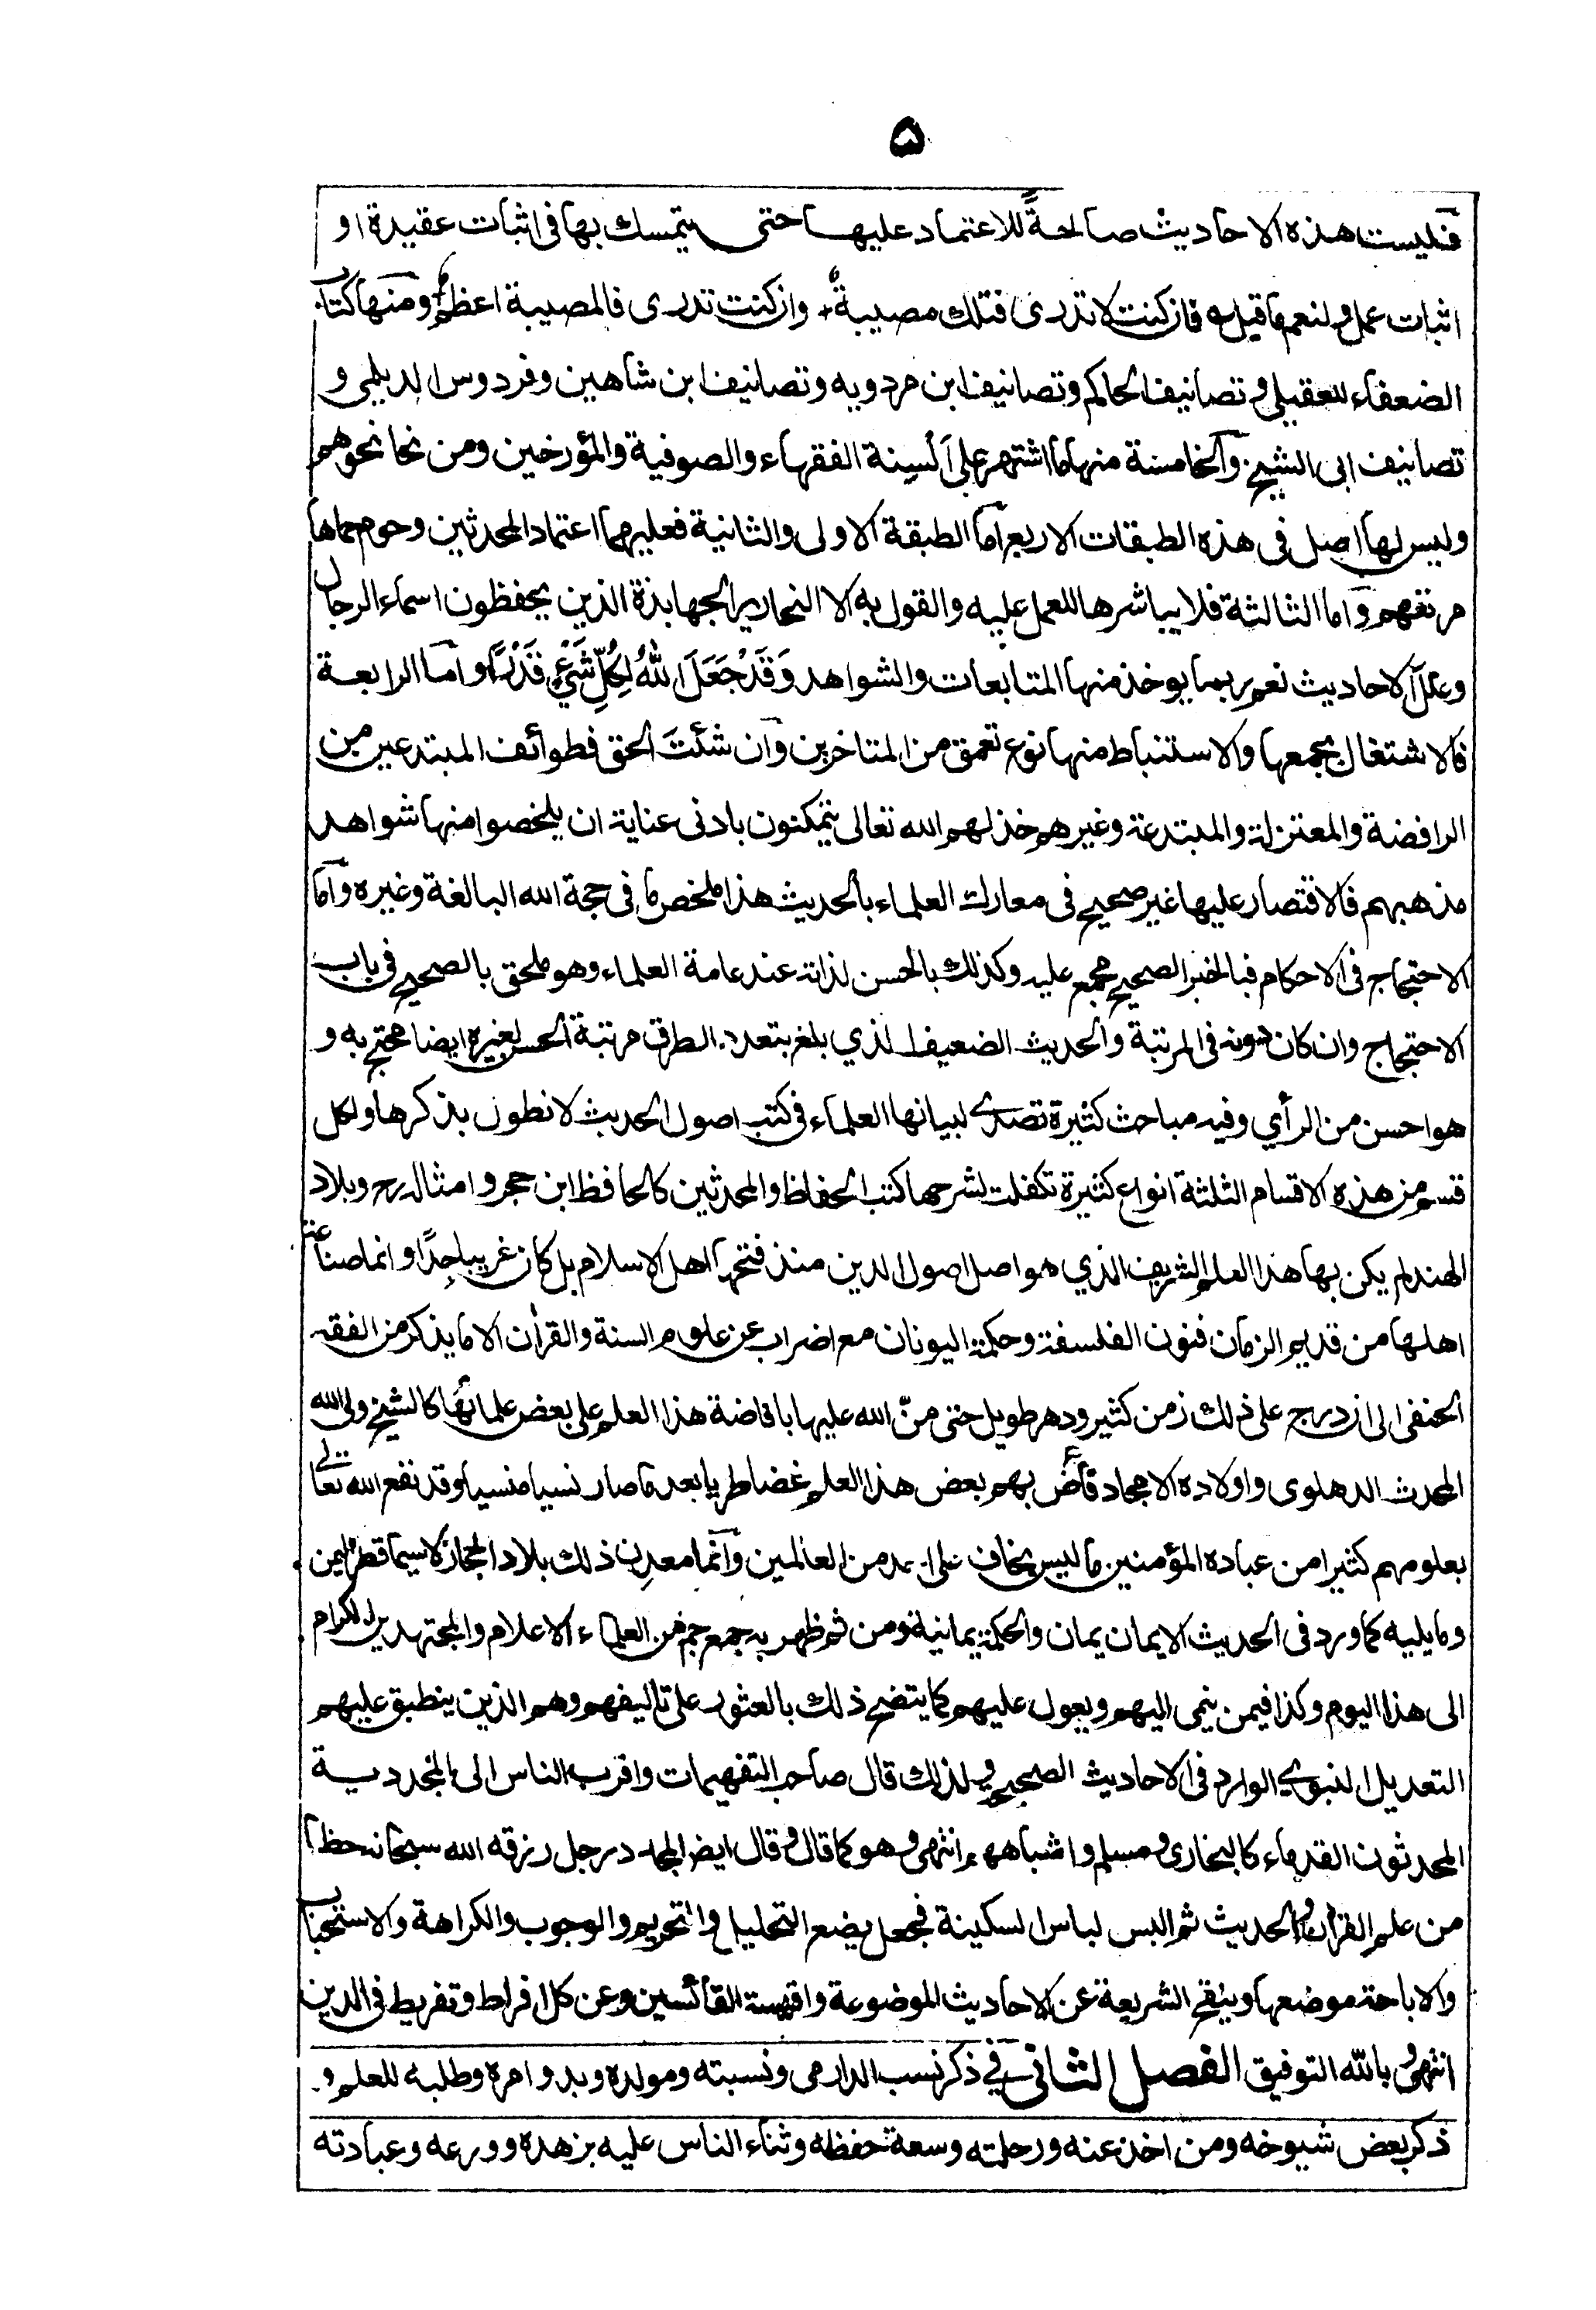 ۵
فليست هذه الاحاديث صالحةً للاعتماد عليها حتى يتمسك بها فى اثبات عقيدة او
اثبات عمل ولنعم ما قيل ه فان كنت لا تدرى فتلك مصيبةٌ + وان كنت تدرى فالمصيبة اعظم + ومنها كتاب
الضعفاء للعقيلى و تصانيف الحاكم وتصانيف ابن مردويه وتصانيف ابن شاهين وفردوس الديلمى و
تصانيف ابى الشيخ والخامسة منها ما اشتهر على اَلْسِنة الفقهاء والصوفية والمؤرخين ومن نحا نحوهم
وليس لها اصل فى هذه الطبقات الاربع اما الطبقة الاولى والثانية فعليهما اعتماد المحدثين وحوم حماها
مرتعهم واما الثالثة فلا يباشرها للعمل عليه والقول به الا النحارير الجهابذة الذين يحفظون اسماء الرجال
وعلل الاحاديث نعم ربما يوخذ منها المتابعات والشواهد وَقَدْ جَعَلَ اللهُ لِكُلِّ شَيْءٍ قَدْرًا واما الرابعة
فالاشتغال بجمعها والاستنباط منها نوع تعمق من المتاخرين وان شئتَ الحق فطوائف المبتدعين من
الرافضة والمعتزلة والمبتدعة وغيرهم خذلهم الله تعالى يتمكنون بادنى عناية ان يلخصوا منها شواهد
مذهبهم فالاقتصار عليها غير صحيح فى معارك العلماء بالحديث هذا ملخص ما فى حجة الله البالغة وغيره واما
الاحتجاج فى الاحكام فبالخبر الصحيح مجمع عليه وكذلك بالحسن لذاته عند عامة العلماء وهو ملحق بالصحيح فى باب
الاحتجاج وان كان دونه فى المرتبة والحديث الضعيف الذي بلغ بتعدد الطرق مرتبة الحسن لغيره ايضا محتج به و
هو احسن من الرأي وفيه مباحث كثيرة تصدى لبيانها العلماء فى كتب اصول الحديث لا نطول بذكرها ولكل
قسم من هذه الاقسام الثلثة انواع كثيرة تكفلت لشرحها كتب الحفاظ والمحدثين كالحافظ ابن حجر وامثاله رح وبلاد
الهند لم يكن بها هذا العلم الشريف الذي هو اصل اصول الدين منذ فتحها اهل الاسلام بل كان غريبا جِدًا وانما صناعة
اهلها من قديم الزمان فنون الفلسفة وحكمة اليونان مع اضراب عن علوم السنة والقرأن الا ما يذكر من الفقه
الحنفى الى ان درج على ذلك زمن كثير ودهر طويل حتى منّ الله عليها بافاضة هذا العلم على بعض علمائها كالشيخ ولى الله
المحدث الدهلوى واولاده الامجاد فأض بهم بعض هذا العلم غضا طريا بعد ما صار نسيا منسيا وقد نفع الله تعالى
بعلومهم كثيرا من عباده المؤمنين ما ليس بخاف على احد من العالمين وانما معدِن ذلك بلاد الحجاز لا سيما قطر اليمن
وما يليه كما ورد فى الحديث الايمان يمان والحكمة يمانية ومن ثم ظهر به جمع جم من العلماء الاعلام والمجتهدين الكرام
الى هذا اليوم وكذا فيمن ينمى اليهم ويعول عليهم كما يتضح ذلك بالعثور على تاليفهم وهم الذين ينطبق عليهم
التعديل النبوي الوارد فى الاحاديث الصحيحة ولذلك قال صاحب التفهيمات واقرب الناس الى المجددية
المحدثون القدماء كالبخارى ومسلم واشباههم انتهى وهو كما قال وقال ايضا المجدد رجل رزقه الله سبحانه حظا
من علم القرأن والحديث ثم البس لباس السكينة فجعل يضع التحليل والتحريم والوجوب والكراهة والاستحباب
والاباحة موضعها وينقح الشريعة عن الاحاديث الموضوعة واقيسة القائسين وعن كل افراط وتفريط فى الدين
انتهى وبالله التوفيق الفصل الثانى فى ذكر نسب الدارمى ونسبته ومولده وبدو امره وطلبه للعلم و
ذكر بعض شيوخه ومن اخذ عنه ورحلته وسعة حفظه وثناء الناس عليه بزهده وورعه وعبادته